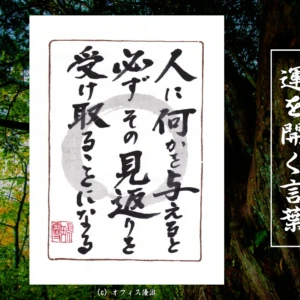 人に何かを与えると
必ずその見返りを
受け取ることになる
運を開く言葉
(c) オフィス湧沼